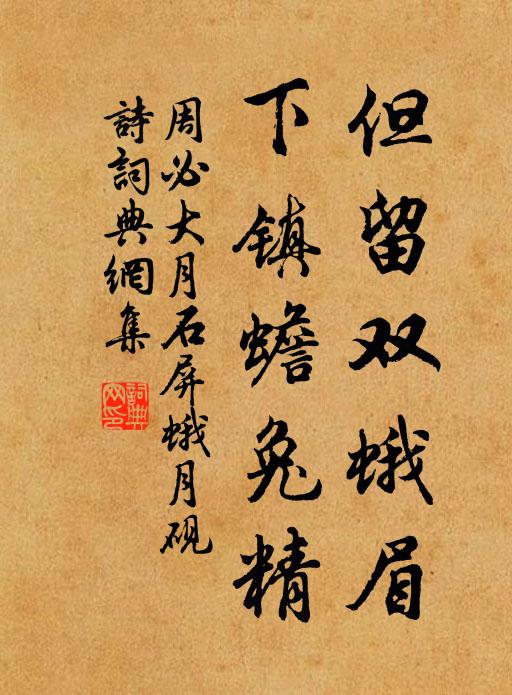 但留双蛾眉
下镇蟾兔精
周必大月石屏蛾月砚
詩詞典網集
詞典网印